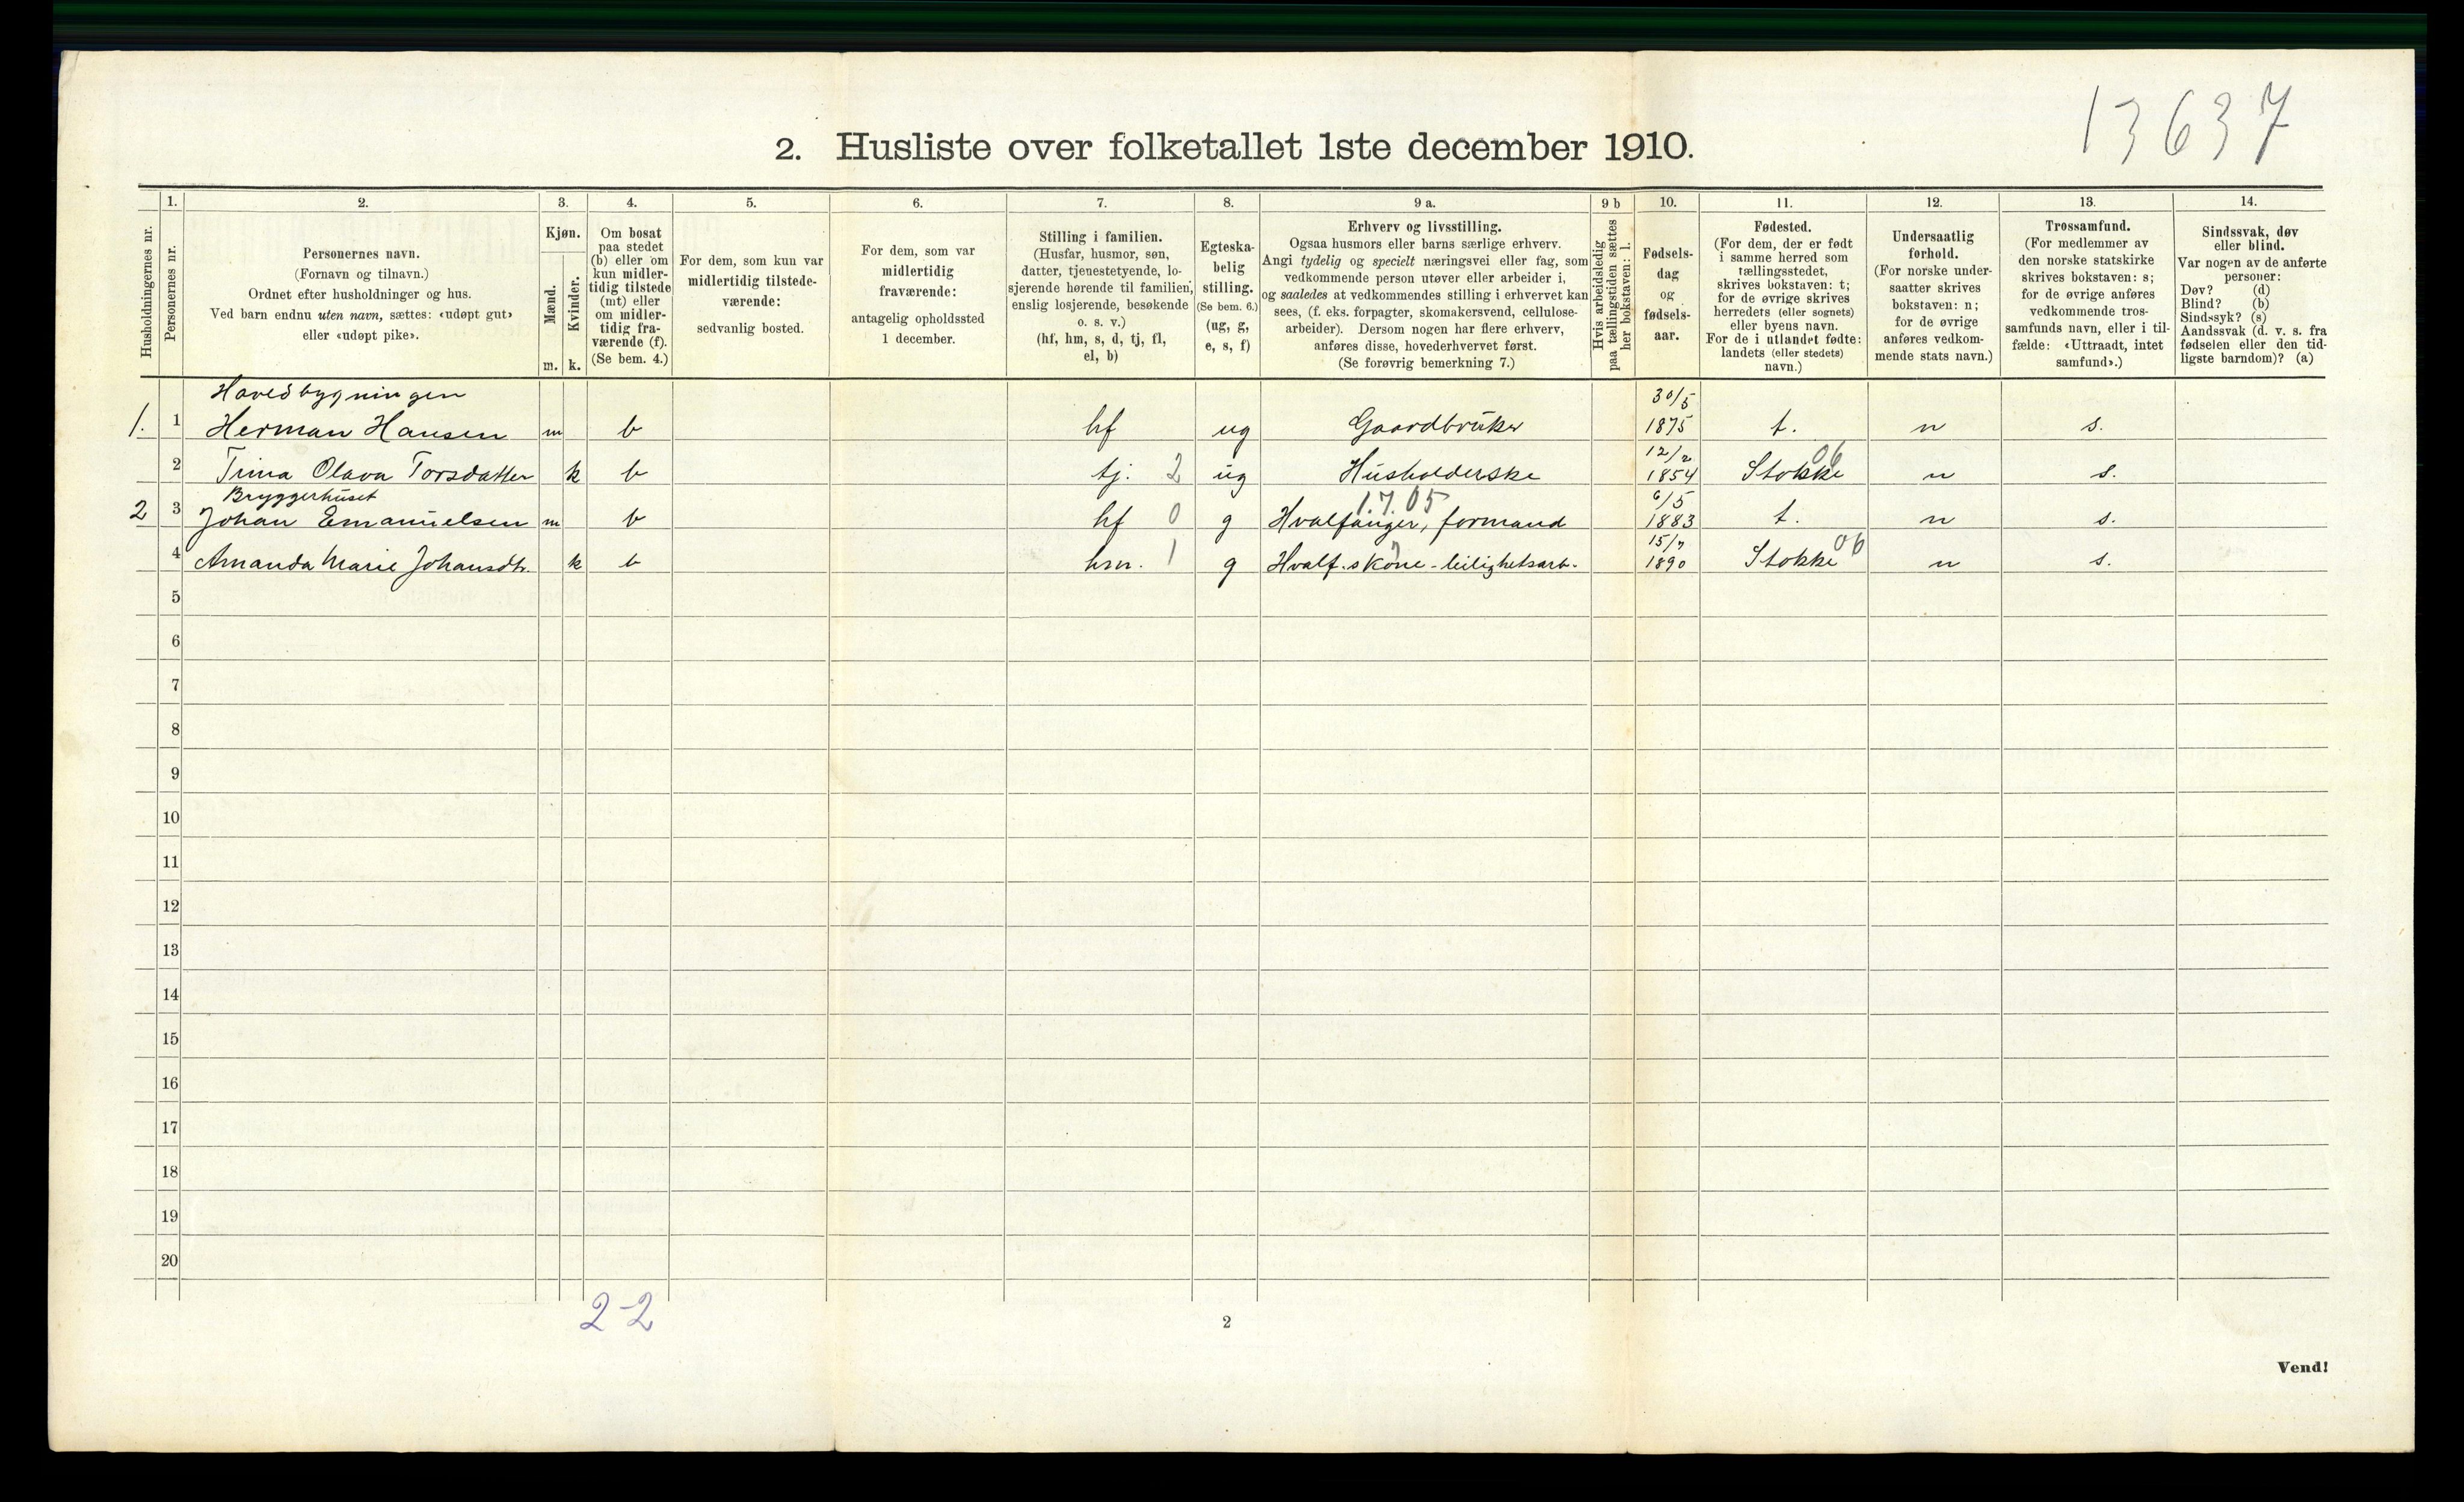 13637
2. Husliste over folketallet 1ste december 1910.
Husholdningernes nr.
1.
Personernes nr.
2.
Personernes navn.
(Fornavn og tilnavn.)
Ordnet efter husholdninger og hus.
Ved barn endnu uten navn, sættes: «udøpt gut»
eller «udøpt pike».
3.
Kjøn.
Mænd.
m.
Kvinder.
k.
4.
Om bosat
paa stedet
(b) eller om
kun midler-
tidig tilstede
(mt) eller
om midler-
tidig fra-
værende (f).
(Se bem. 4.)
5.
For dem, som kun var
midlertidig tilstede-
værende:
sedvanlig bosted.
6.
For dem, som var
midlertidig
fraværende:
antagelig opholdssted
1 december.
7.
Stilling i familien.
(Husfar, husmor, søn,
datter, tjenestetyende, lo-
sjerende hørende til familien,
enslig losjerende, besøkende
o. s. v.)
(hf, hm, s, d, tj, fl,
el, b)
8.
Egteska-
belig
stilling.
(Se bem. 6.)
(ug, g,
e, s, f)
9 a.
Erhverv og livsstilling.
Ogsaa husmors eller barns særlige erhverv.
Angi tydelig og specielt næringsvei eller fag, som
vedkommende person utøver eller arbeider i,
og saaledes at vedkommendes stilling i erhvervet kan
sees, (f. eks. forpagter, skomakersvend, cellulose-
arbeider). Dersom nogen har flere erhverv,
anføres disse, hovederhvervet først.
(Se forøvrig bemerkning 7.)
9 b
Hvis arbeidsledig
paa tællingstiden sættes
her bokstaven: l.
10.
Fødsels-
dag
og
fødsels-
aar.
11.
Fødested.
(For dem, der er født
i samme herred som
tællingsstedet,
skrives bokstaven: t;
for de øvrige skrives
herredets (eller sognets)
eller byens navn.
For de i utlandet fødte:
landets (eller stedets)
navn.)
12.
Undersaatlig
forhold.
(For norske under-
saatter skrives
bokstaven: n;
for de øvrige
anføres vedkom-
mende stats navn.)
13.
Trossamfund.
(For medlemmer av
den norske statskirke
skrives bokstaven: s;
for de øvrige anføres
vedkommende tros-
samfunds navn, eller i til-
fælde: «Uttraadt, intet
samfund».)
14.
Sindssvak, døv
eller blind.
Var nogen av de anførte
personer:
Døv? (d)
Blind? (b)
Sindssyk? (s)
Aandssvak (d. v. s. fra
fødselen eller den tid-
ligste barndom)? (a)
Hovedbygningen
1. 1 Herman Hansen m b hf ug Gaardbruker 30/5 1875 t. n s.
2 Trina Olava Torsdatter k b tj. 2 ug Husholderske 12/2 1854 Stokke 06 n s.
Bryggerhuset 1.7.05
2 3 Johan Emanuelsen m b hf 0 g Hvalfanger, formand 6/5 1883 t. n s.
4 Amanda Marie Johansdtr. k b hm. 1 g Hvalf. skone - leilighetsarb. 15/7 1890 Stokke 06 n s.
5
6
7
8
9
10
11
12
13
14
15
16
17
18
19
20
2-2
2
Vend!